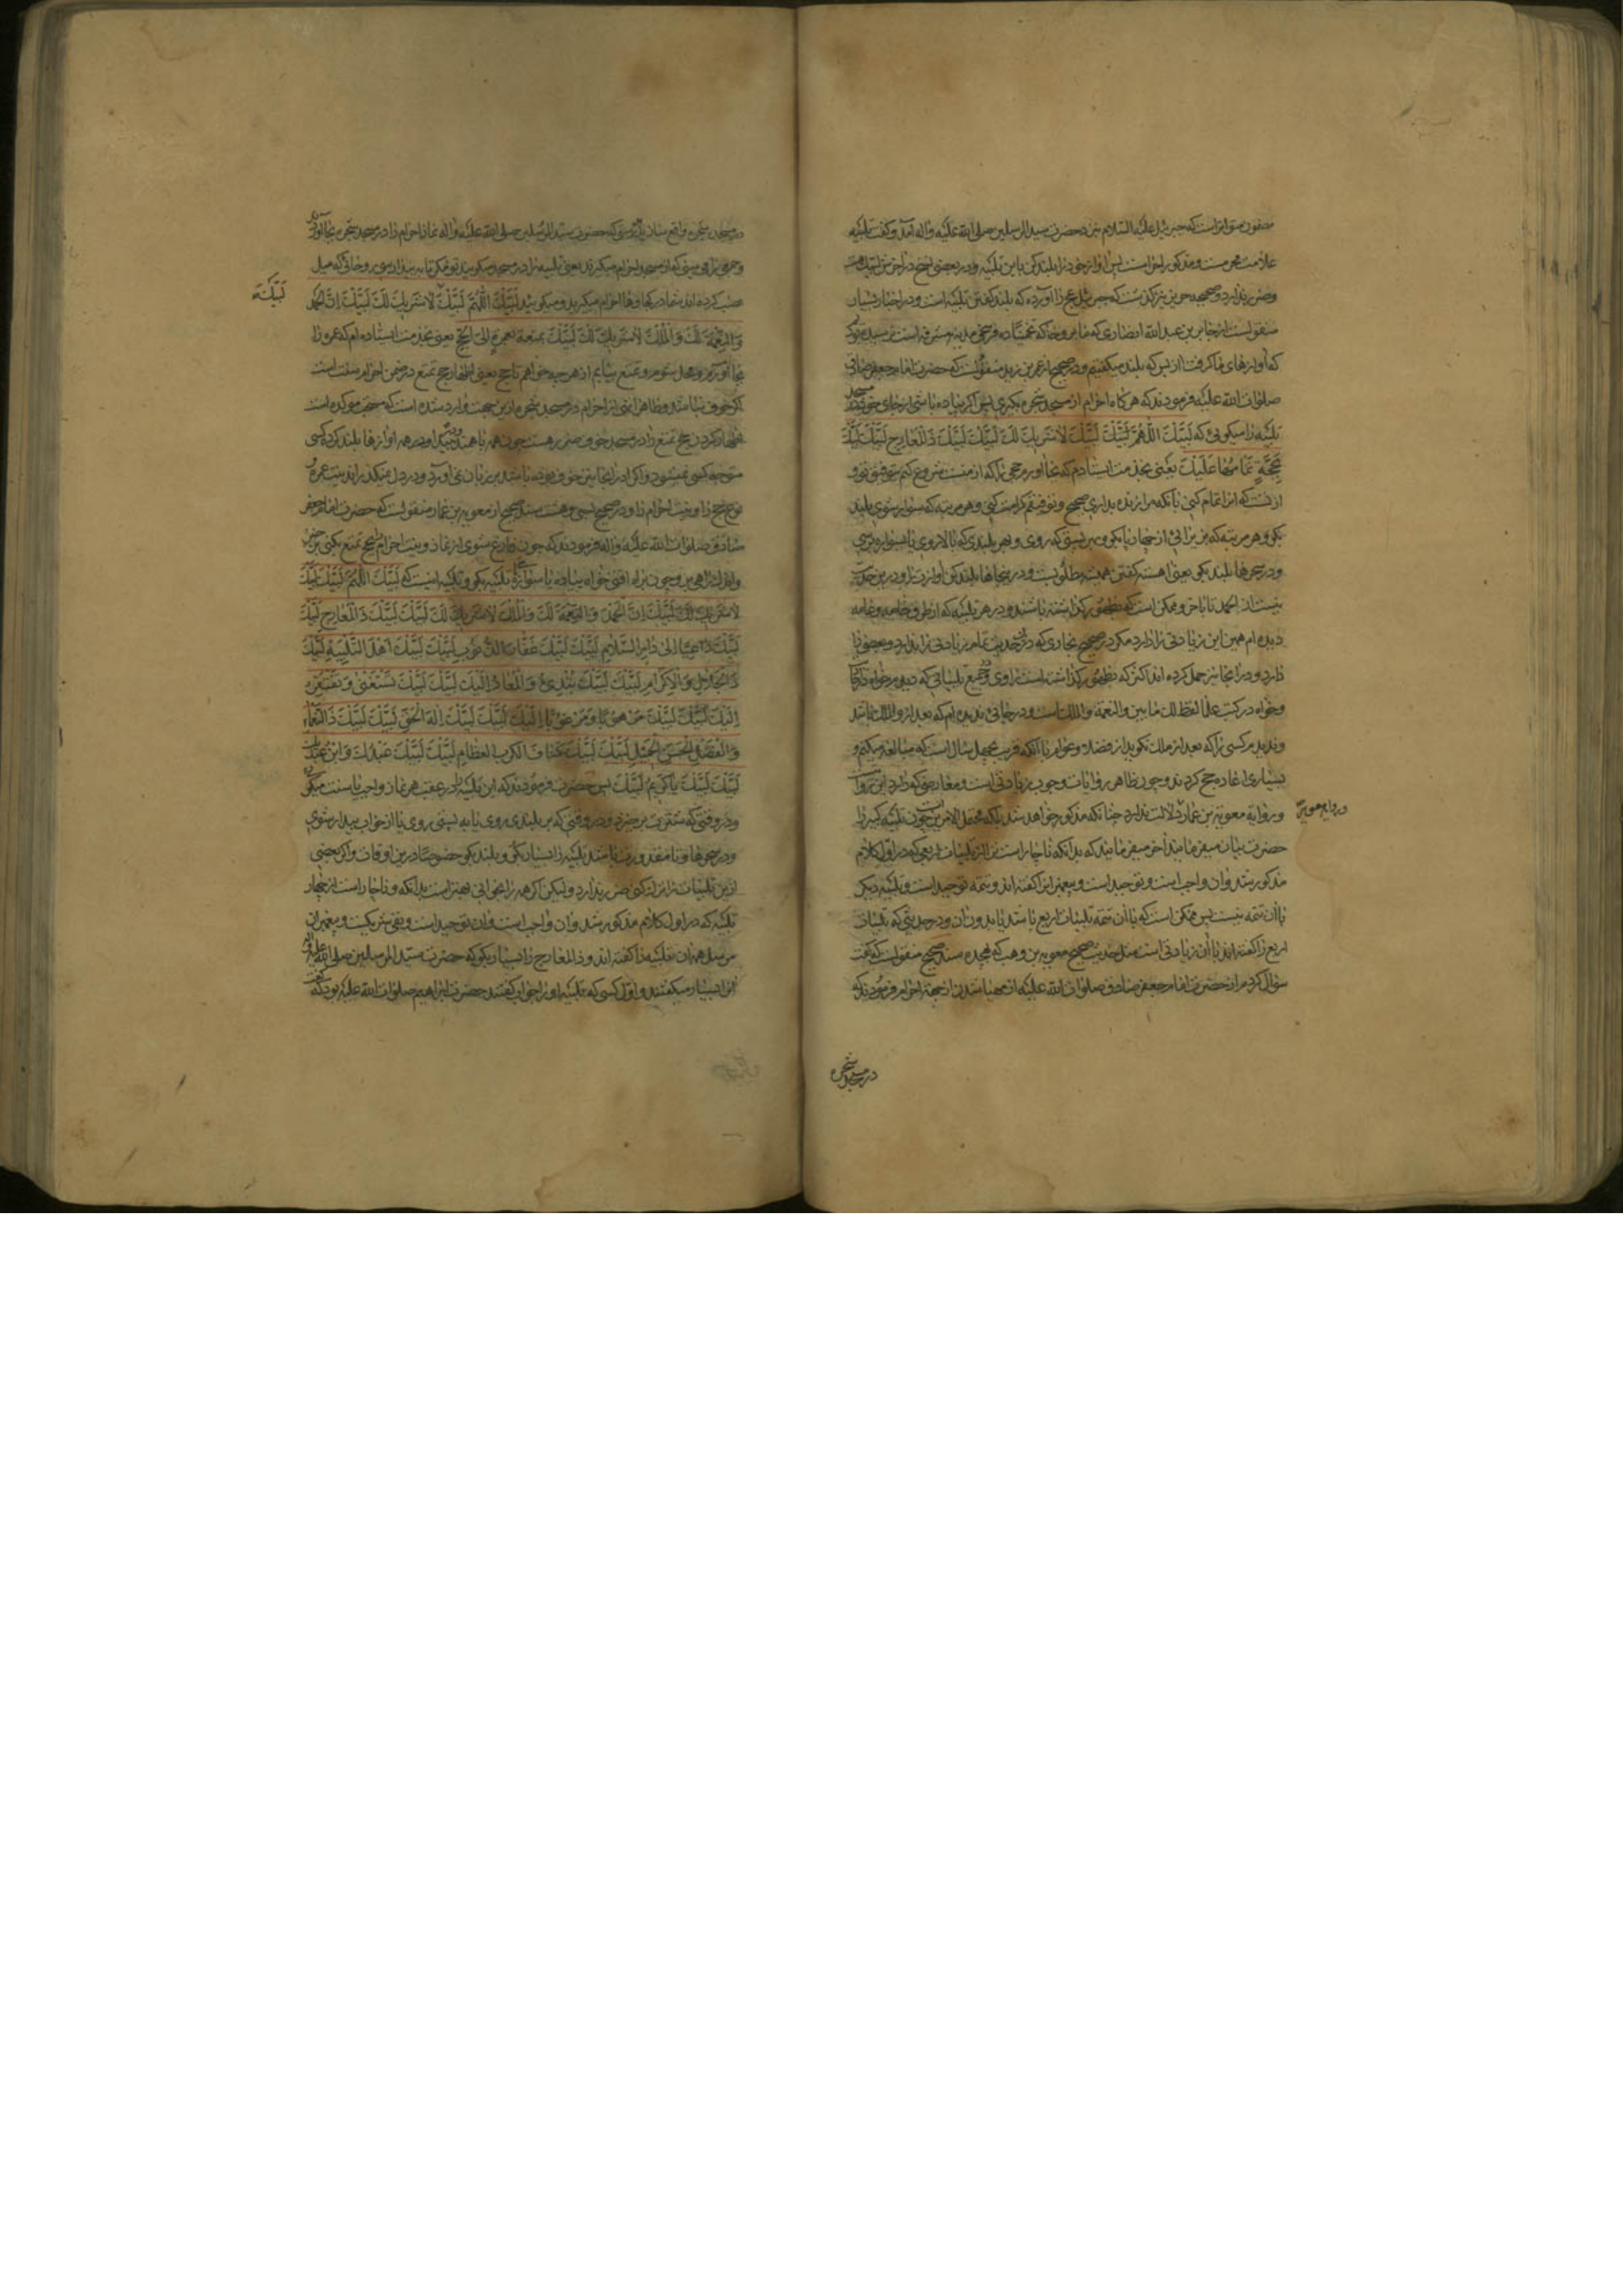 مضمون متواتر است که جبرئیل علیه السلام نزد حضرت سید المرسلین صلی الله علیه واله آمد و گفت تلبیه
علامت محرمست و مذکور احرامست پس آواز خود را بلند کن باین تلبیه و در بعضی نسخ در آخرش لبیک هست
وضرر ندارد و صحیحه حریز نیز گذشت که جبرئیل عج را آورده که بلند گفتن تلبیه است و در اخبار بسیار
منقولست از جابر بن عبد الله انصاری که ما بروحا که تخمینا ده فرسخی مدینه مشرفه است نرسیده بودیم
که آوازهای ما گرفت از بس که بلند میگفتیم و در صحیح از عمر بن یزید منقولست که حضرت امام جعفر صادق
صلوات الله علیه فرمودند که هرگاه احرام از مسجد شجره بگیری پس اگر پیاده باشی از جای خود در مسجد
تلبیه را میگوئی که لَبَّيْكَ اللَّهُمَّ لَبَّيْكَ لَبَّيْكَ لَا شَرِيكَ لَكَ لَبَّيْكَ لَبَّيْكَ ذَا الْمَعَارِجِ لَبَّيْكَ لَبَّيْكَ
بِحَجَّةٍ تَمَامُهَا عَلَيْكَ یعنی بخدمت ایستادم که بجا آورم حجی را که از منست شروع کنم بتوفیق تو و
از تست که آنرا تمام کنی بآنکه مرا زنده بداری و توفیقم کرامت کنی و هر مرتبه که سوار شوی تلبیه
بگو و هر مرتبه که بزیر آئی از جهاز بگو و بهر پستی که روی و بهر بلندی که بالا روی یا بسواره برسی
و در سحرها بلند بگو یعنی آهسته گفتن همیشه مطلوبست و در اینجاها بلند کن آواز ترا و درین حدیث
نیست ان الحمد تا بآخر و ممکن است که بظهور گذاشته باشند و در هر تلبیه که از طرق خاصه و عامه
دیده ام همین این زیادتی را دارد مگر در صحیح بخاری که در آن حدیث تمام زیادتی را ندارد و بعضی را
دارد و در آنجا نیز حمل کرده اند اکثر که بظهور گذاشته است راوی و در جمیع تلبیاتی که دیدم خواه در کتب
و خواه در کتب علما لفظ لک مابین والنعمة والملک است و در جائی ندیدم که بعد از والملک باشد
و ندیدم کسی را که بعد از ملک نگوید از فضلا و عوام با آنکه قریب بچهل سال است که مبالغه میکنم و
بسیاری اعاده حج کردند و چون ظاهر روایات وجوب زیادتی است و معارضی که دارد این روایت
و روایة معویة بن عمار دلالت ندارد چنانکه مذکور خواهد شد بلکه محتمل الامرین است چون تلبیه کبیر را
حضرت بیان میفرمایند آخر میفرمایند که بدانکه ناچار است ترا از تلبیات اربعی که در اول کلام
مذکور شد و آن واجب است و توحید است و پیغمبران گفته اند و تتمه توحید است و تلبیه دیگر
با آن تتمه نیست پس ممکن است که با آن تتمه تلبیات اربع باشد یا بدون آن و در حدیثی که تلبیات
اربع را گفته اند با آن زیادتی است مثل حدیث صحیح معویه بن وهب که بچند سند صحیح منقولست که گفت
سؤال کردم از حضرت امام جعفر صادق صلوات الله علیه از مهیا شدن از جهة احرام فرمودند که
در روایه معویه
در مسجد شجره
در مسجد شجره واقع ساز یا نبینی که حضرت سید المرسلین صلی الله علیه واله نماز احرام را در مسجد شجره بجا آوردند
و جمعی را می بینی که از مسجد احرام میگیرند یعنی تلبیه را در مسجد میگویند تو مکن تا به بیدا برسی و جائی که میل
نصب کرده اند شما در کجاوها احرام میگیرید و میگوئید لَبَّيْكَ اللَّهُمَّ لَبَّيْكَ لَا شَرِيكَ لَكَ لَبَّيْكَ إِنَّ الْحَمْدَ
وَالنِّعْمَةَ لَكَ وَالْمُلْكَ لَا شَرِيكَ لَكَ لَبَّيْكَ بمتعة بعمرة إلی الحج یعنی بخدمت ایستاده ام که عمره را
بجا آورم و محل شوم و تمتع بیابم از هر چه خواهم تا حج یعنی اظهار حج تمتع در ضمن احرام سنت است
اگر خوف نباشد و ظاهرا نهی از احرام در مسجد شجره ازین جهت وارد شده است که مستحب موکده است
اظهار کردن حج تمتع را و در مسجد خوف ضرر هست چون همه باهمند و در بیدا و در همه آوازها بلند کرده کسی
متوجه کسی نمیشود و اگر در آنجا نیز خوف بوده باشد بر زبان نمی آورد و در دل میگذراند نیت عمره و
نوع حج را و نیت احرام را و در صحیح و حسن منقولست از معویه بن عمار که حضرت امام جعفر
صادق صلوات الله علیه واله فرمودند که چون فارغ شوی از نماز و نیت احرام بحج تمتع بکنی برخیز
واندک راهی برو چون براه افتی خواه پیاده یا سواره تلبیه بگو و تلبیه اینست که لَبَّيْكَ اللَّهُمَّ لَبَّيْكَ لَبَّيْكَ
لَا شَرِيكَ لَكَ لَبَّيْكَ إِنَّ الْحَمْدَ وَالنِّعْمَةَ لَكَ وَالْمُلْكَ لَا شَرِيكَ لَكَ لَبَّيْكَ لَبَّيْكَ ذَا الْمَعَارِجِ لَبَّيْكَ
لَبَّيْكَ دَاعِيًا إِلَى دَارِ السَّلَامِ لَبَّيْكَ لَبَّيْكَ غَفَّارَ الذُّنُوبِ لَبَّيْكَ لَبَّيْكَ أَهْلَ التَّلْبِيَةِ لَبَّيْكَ
ذَا الْجَلَالِ وَالْإِكْرَامِ لَبَّيْكَ لَبَّيْكَ تُبْدِئُ وَالْمَعَادُ إِلَيْكَ لَبَّيْكَ لَبَّيْكَ تَسْتَغْنِي وَنَفْتَقِرُ
إِلَيْكَ لَبَّيْكَ لَبَّيْكَ مَرْهُوبًا وَمَرْعُوبًا إِلَيْكَ لَبَّيْكَ لَبَّيْكَ إِلَهَ الْحَقِّ لَبَّيْكَ لَبَّيْكَ ذَا النَّعْمَاءِ
وَالْفَضْلِ الْحَسَنِ الْجَمِيلِ لَبَّيْكَ لَبَّيْكَ كَشَّافَ الْكُرَبِ الْعِظَامِ لَبَّيْكَ لَبَّيْكَ عَبْدُكَ وَابْنُ عَبْدَيْكَ
لَبَّيْكَ لَبَّيْكَ يَا كَرِيمُ لَبَّيْكَ پس حضرت فرمودند که این تلبیه را در عقب هر نماز واجب یا سنت میگوی
و در وقتی که شترت برخیزد و در وقتی که بر بلندی روی یا به پستی روی یا از خواب بیدار شوی
و در سحرها و تا مقدورت باشد تلبیه را بسیار بگو و بلند بگو خصوصا درین اوقات و اگر بعضی
ازین تلبیات را ترک کنی ضرر ندارد ولیکن اگر همه را بخوانی بهتر است بدانکه ناچار است از چهار
تلبیه که در اول کلام مذکور شد و آن واجب است و آن توحید است و نفی شریکست و پیغمبران
مرسل همه آن تلبیه را گفته اند و ذا المعارج را بسیار بگو که حضرت سید المرسلین صلی الله علیه واله
این را بسیار میگفتند و اول کسی که تلبیه او را جواب گفتند حضرت ابراهیم صلوات الله علیه بود که
لبیک